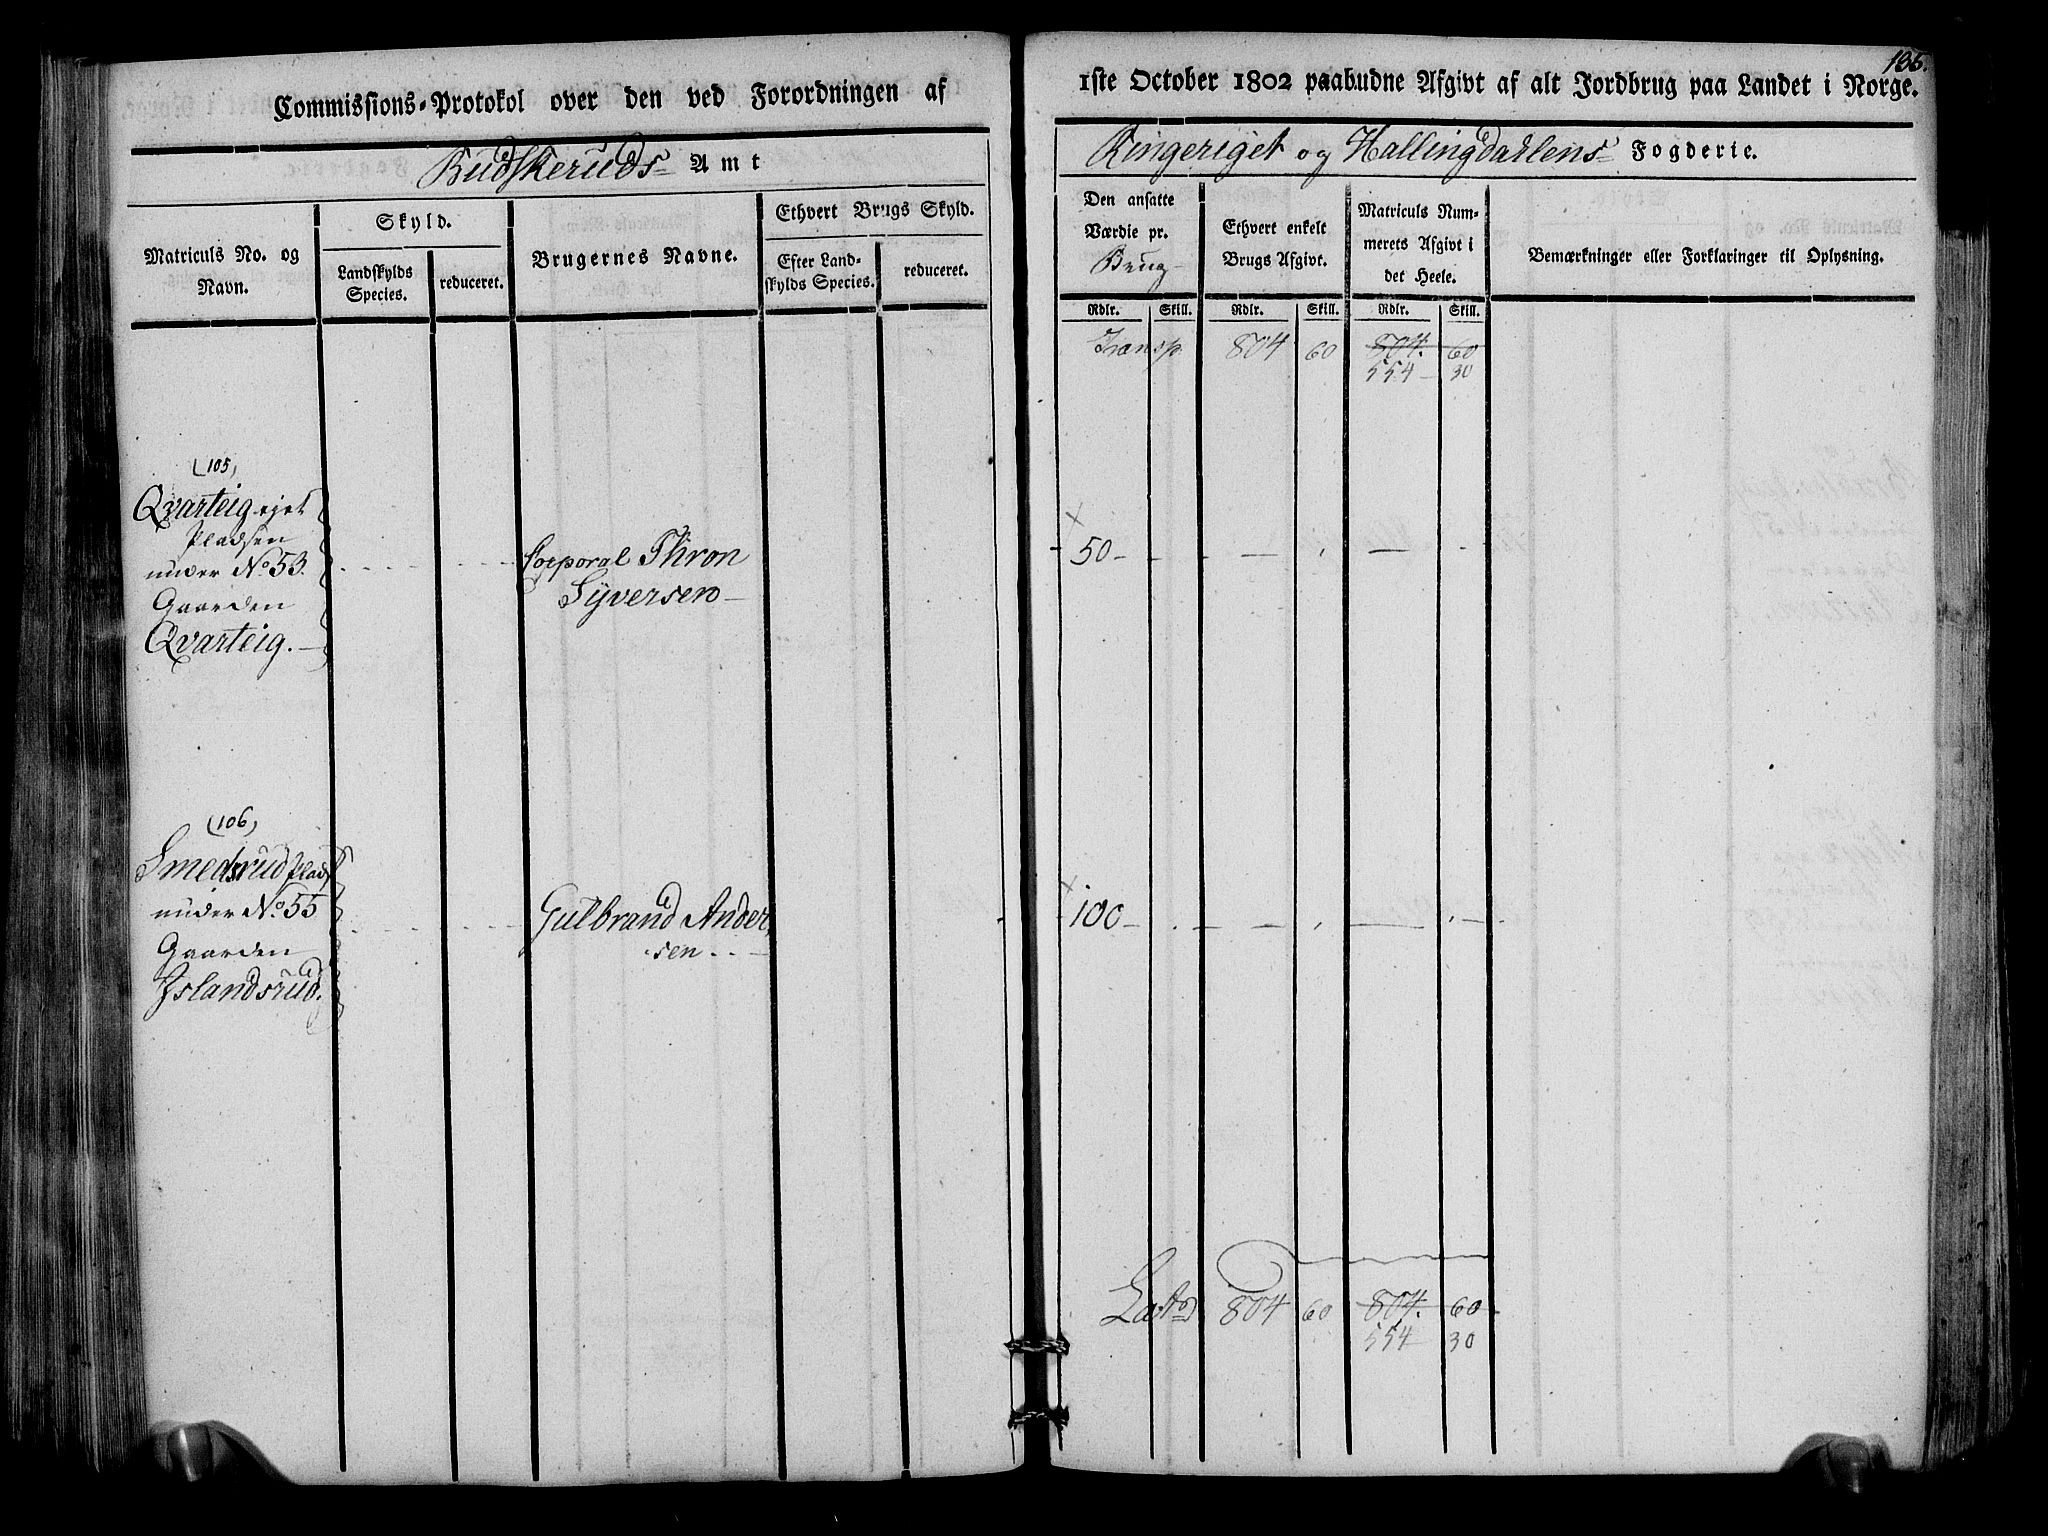 186.
Commissions-Protokol over den ved Forordningen af
1ste October 1802 paabudne Afgivt af alt Jordbrug paa Landet i Norge.
Budskeruds Amt
Ringeriget og Hallingdahlens Fogderie.
Matriculs No. og
Navn.
Skyld.
Landskylds
Species.
reduceret.
Brugernes Navne.
Ethvert Brugs Skyld.
Efter Land-
skylds Species.
reduceret.
Den ansatte
Værdie pr.
Brug
Rdlr. Skill.
Ethvert enkelt
Brugs Afgivt.
Rdlr. Skill.
Matriculs Num-
merets Afgivt i
det Heele.
Rdlr. Skill.
Bemærkninger eller Forklaringer til Oplysning.
Transp. 804 60 804. 60
554 30
(105)
Qvarteig ejet
Pladsen
under No 53.
Gaarden
Qvarteig.
Corporal Thron
Syversen
50
(106)
Smedsrud Plads
under No 55
Gaarden
Islandsrud.
Gulbrand Ander
sen
100
Lat 804 60 804. 60
554 30